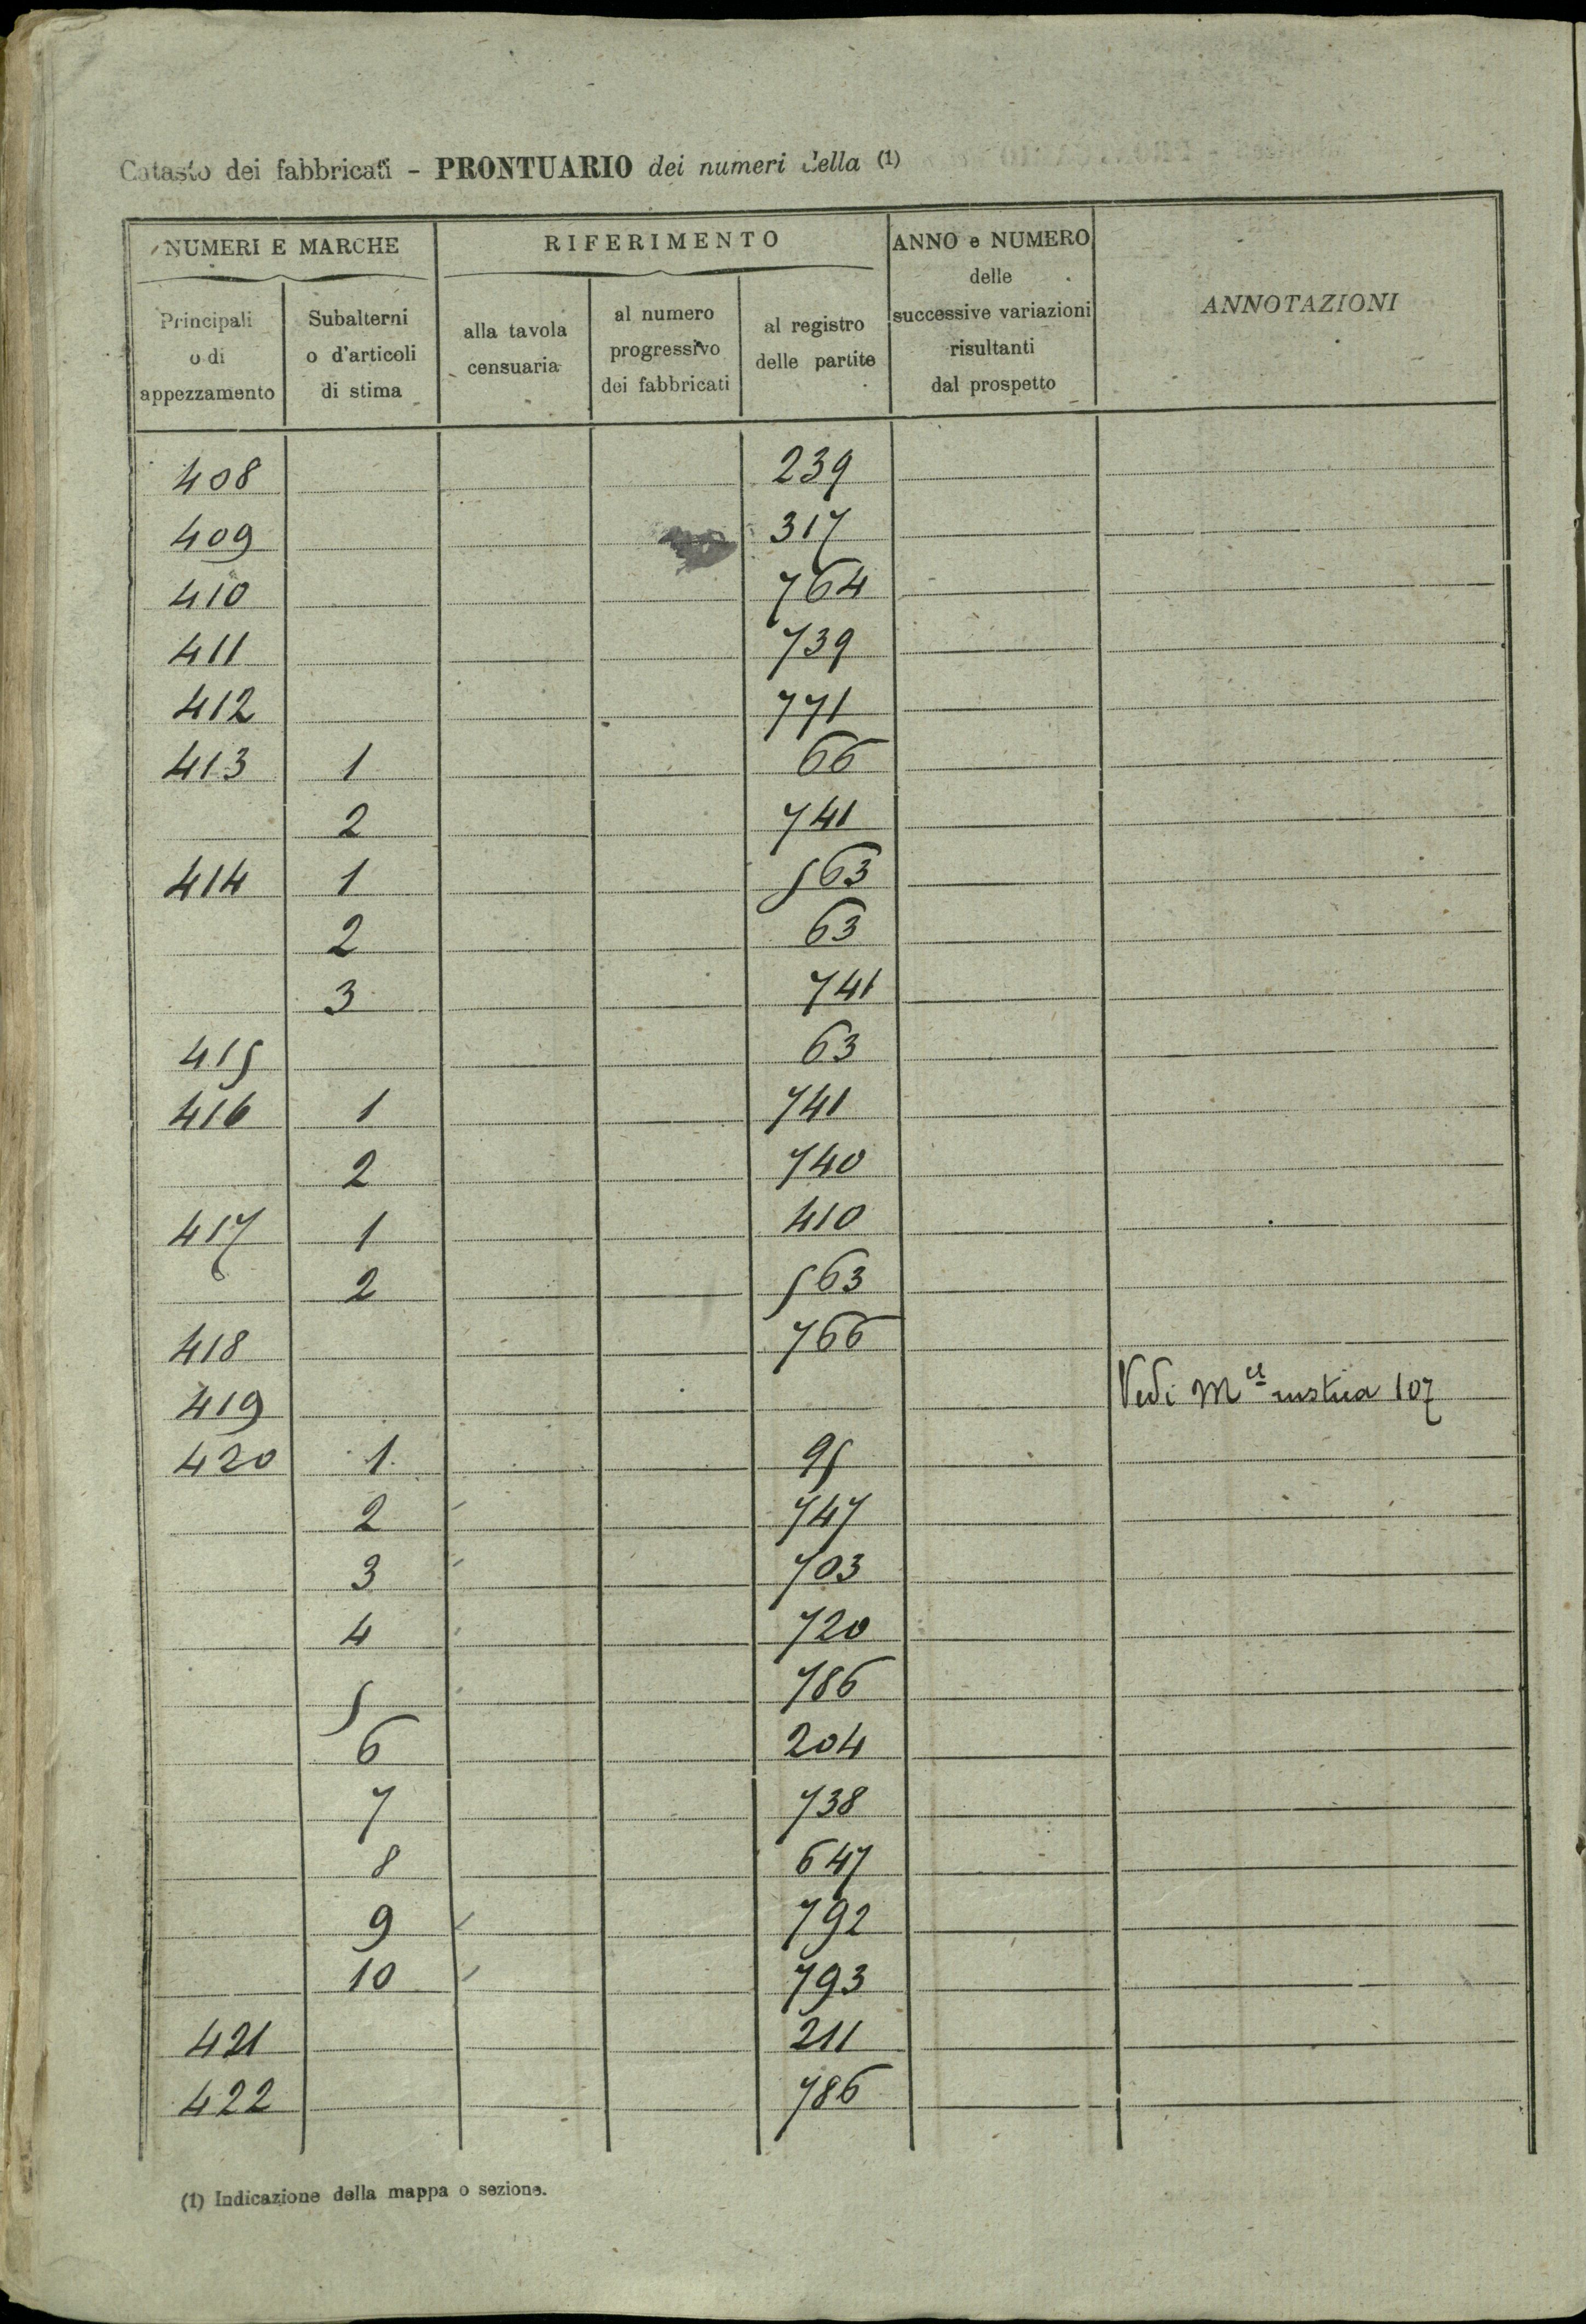 Catasto dei fabbricati - PRONTUARIO dei numeri della (1)
NUMERI E MARCHE
RIFERIMENTO
ANNO e NUMERO
delle
successive variazioni
risultanti
dal prospetto
ANNOTAZIONI
Principali
o di
appezzamento
Subalterni
o d'articoli
di stima
alla tavola
censuaria
al numero
progressivo
dei fabbricati
al registro
delle partite
408 239
409 317
410 764
411 739
412 771
413 1 66
2 741
414 1 563
2 63
3 741
415 63
416 1 741
2 740
417 1 410
2 563
418 766
419 Vedi 107
420 1 95
2 747
3 703
4 720
5 786
6 204
7 738
8 647
9 792
10 793
421 211
422 786
(1) Indicazione della mappa o sezione.